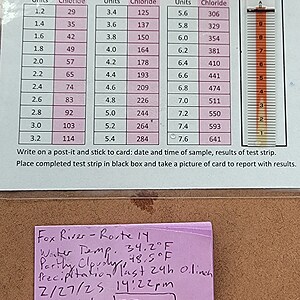 Units Chloride Units Chloride Units Chloride
1.2 29 3.4 125 5.6 306
1.4 35 3.6 137 5.8 329
1.6 42 3.8 150 6.0 354
1.8 49 4.0 164 6.2 381
2.0 57 4.2 178 6.4 410
2.2 65 4.4 193 6.6 441
2.4 74 4.6 209 6.8 474
2.6 83 4.8 226 7.0 511
2.8 92 5.0 244 7.2 550
3.0 103 5.2 264 7.4 593
3.2 114 5.4 284 7.6 641
Write on a post-it and stick to card: date and time of sample, results of test strip.
Place completed test strip in black box and take a picture of card to report with results.
Fox River - Route 14
Water Temp. 34.2°F
Partly Cloudy, 48.5°F
Precipitation last 24h 0.1inch
2/27/25 14:22pm